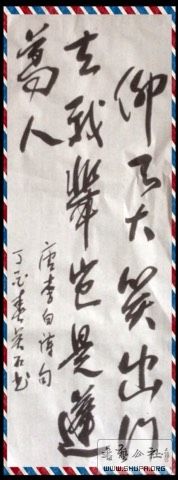 仰天大笑出门
去我輩豈是蓬
蒿人
唐李白诗句
丁酉春
书
書藝公社
WWW.SHUFA.ORG